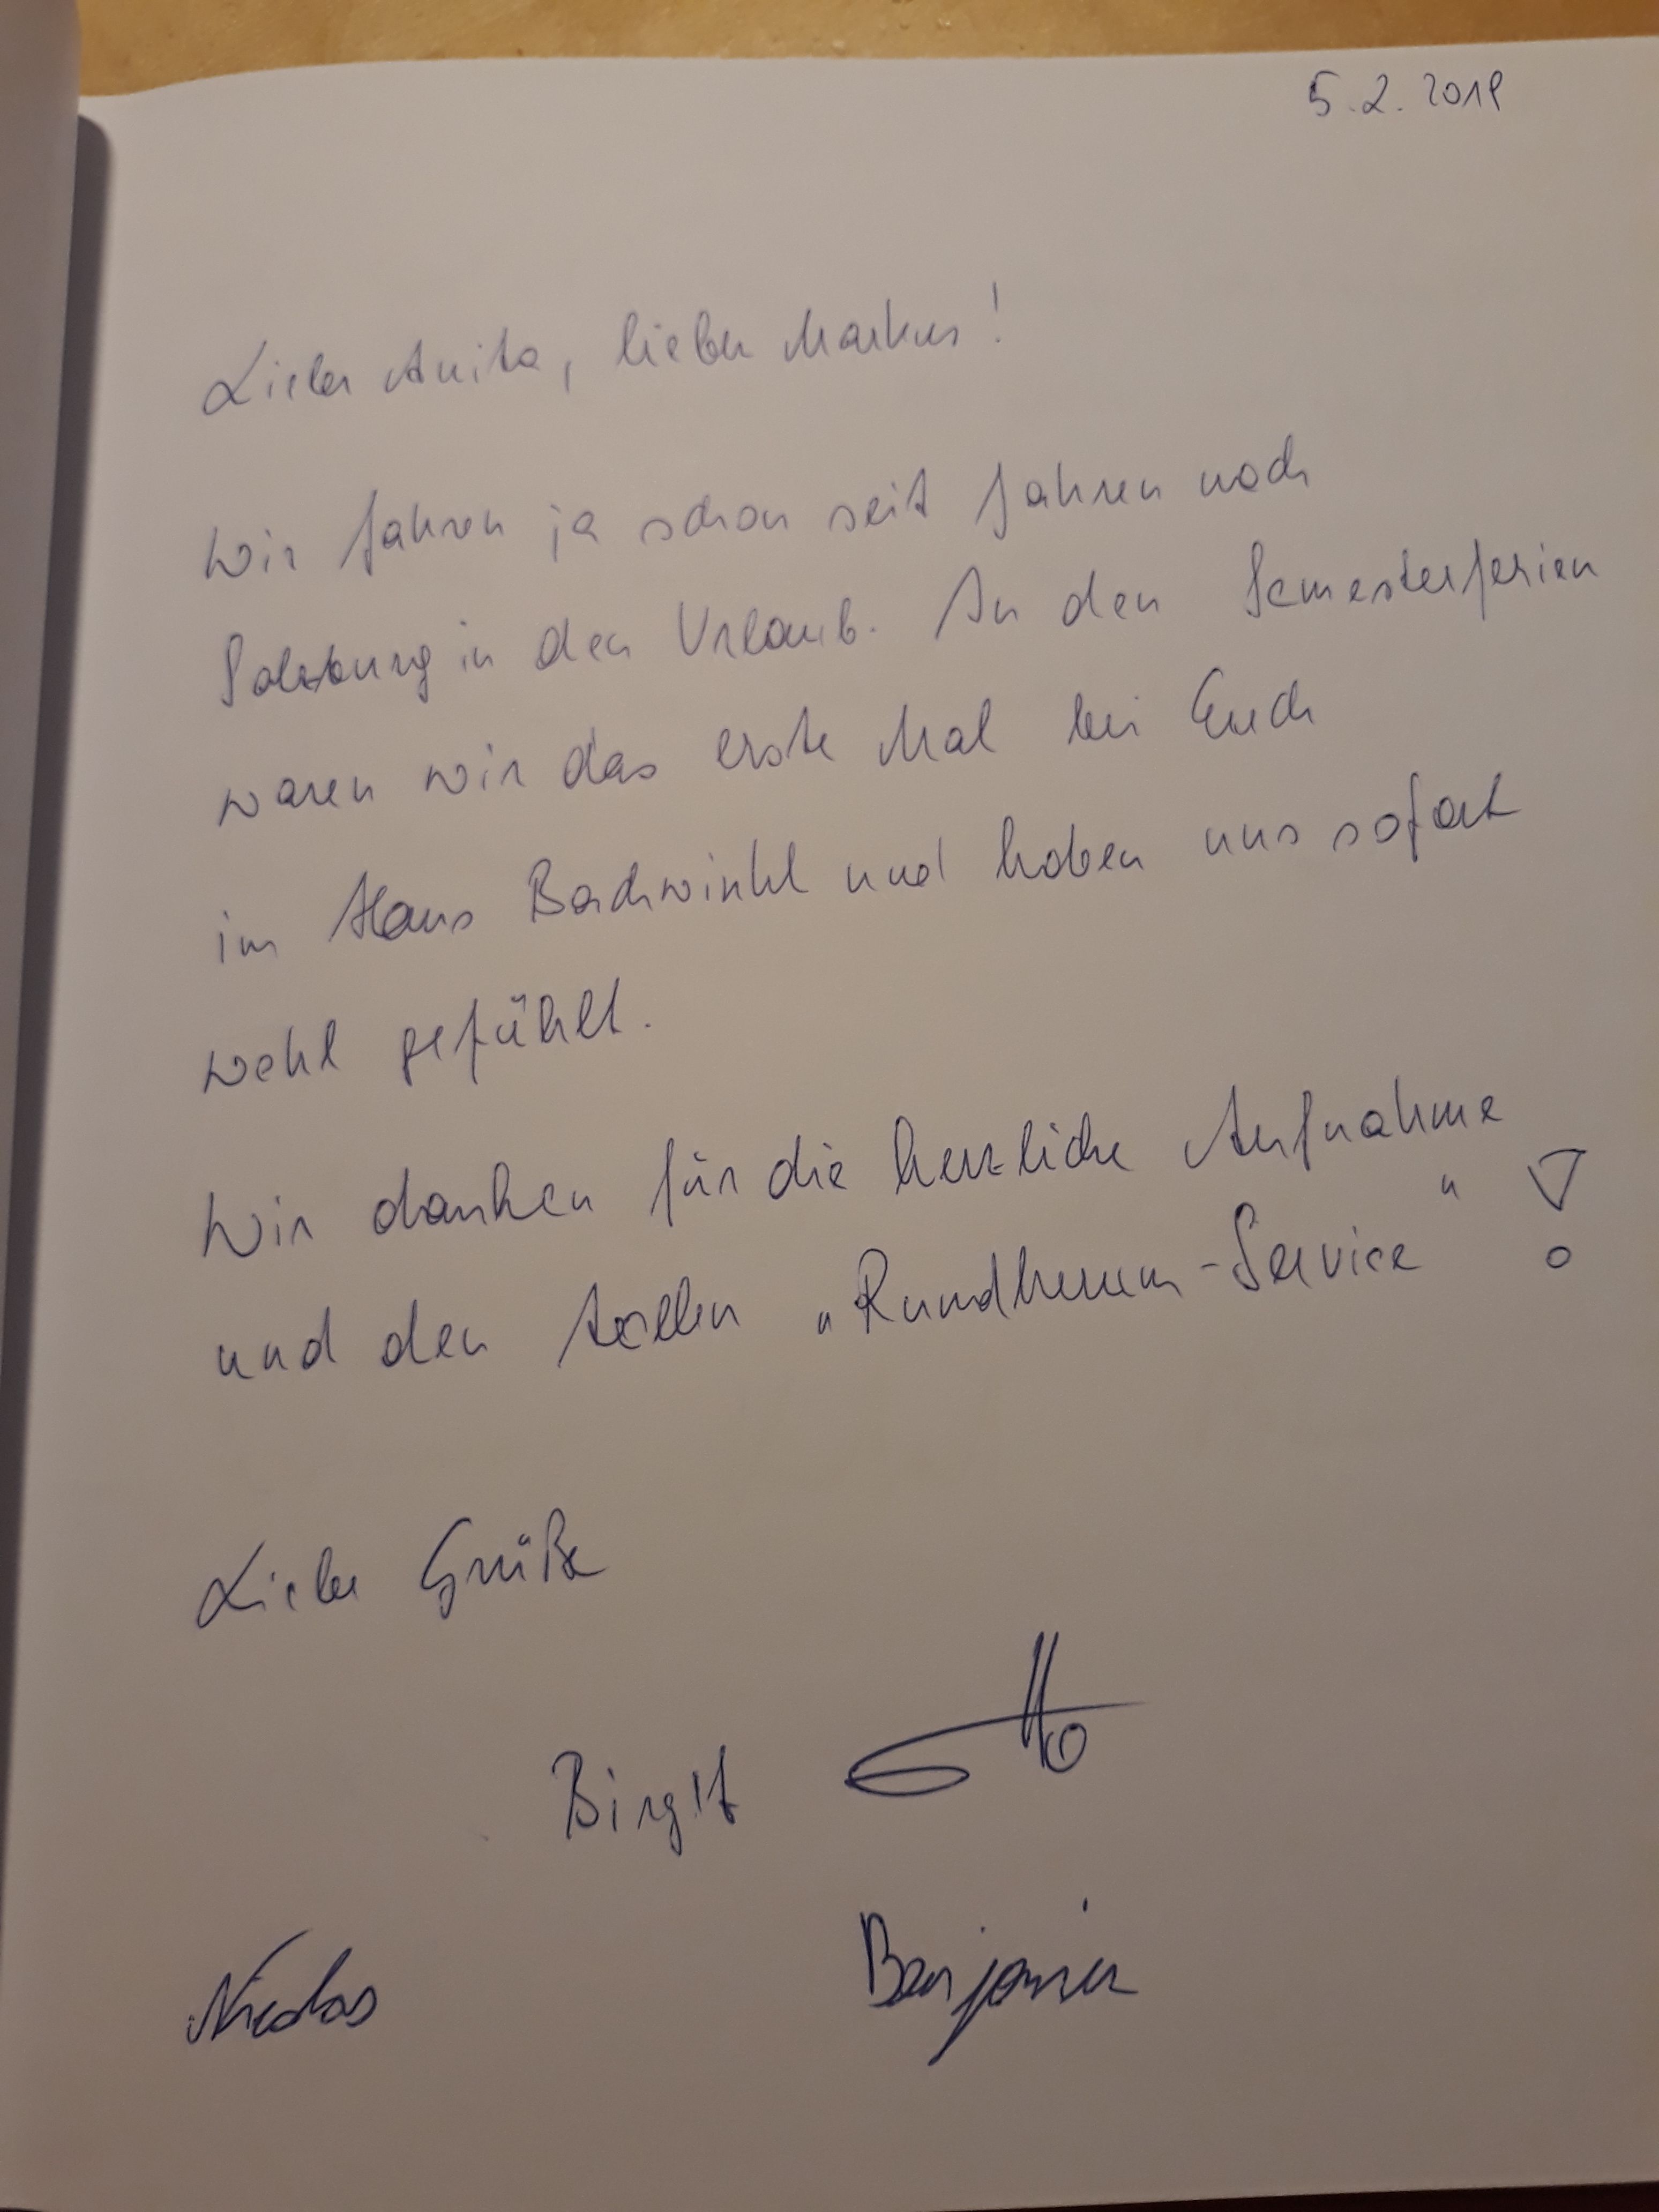 5.2.2019
Liebe Anita, lieber Markus!
Wir fahren ja schon seit Jahren nach
Salzburg in den Urlaub. In den Semesterferien
waren wir das erste Mal bei Euch
im Haus Bachwinkl und haben uns sofort
wohl gefühlt.
Wir danken für die herzliche Aufnahme
und den tollen „Rundherum-Service" !
Liebe Grüße
Birgit
Nicolas
Benjamin